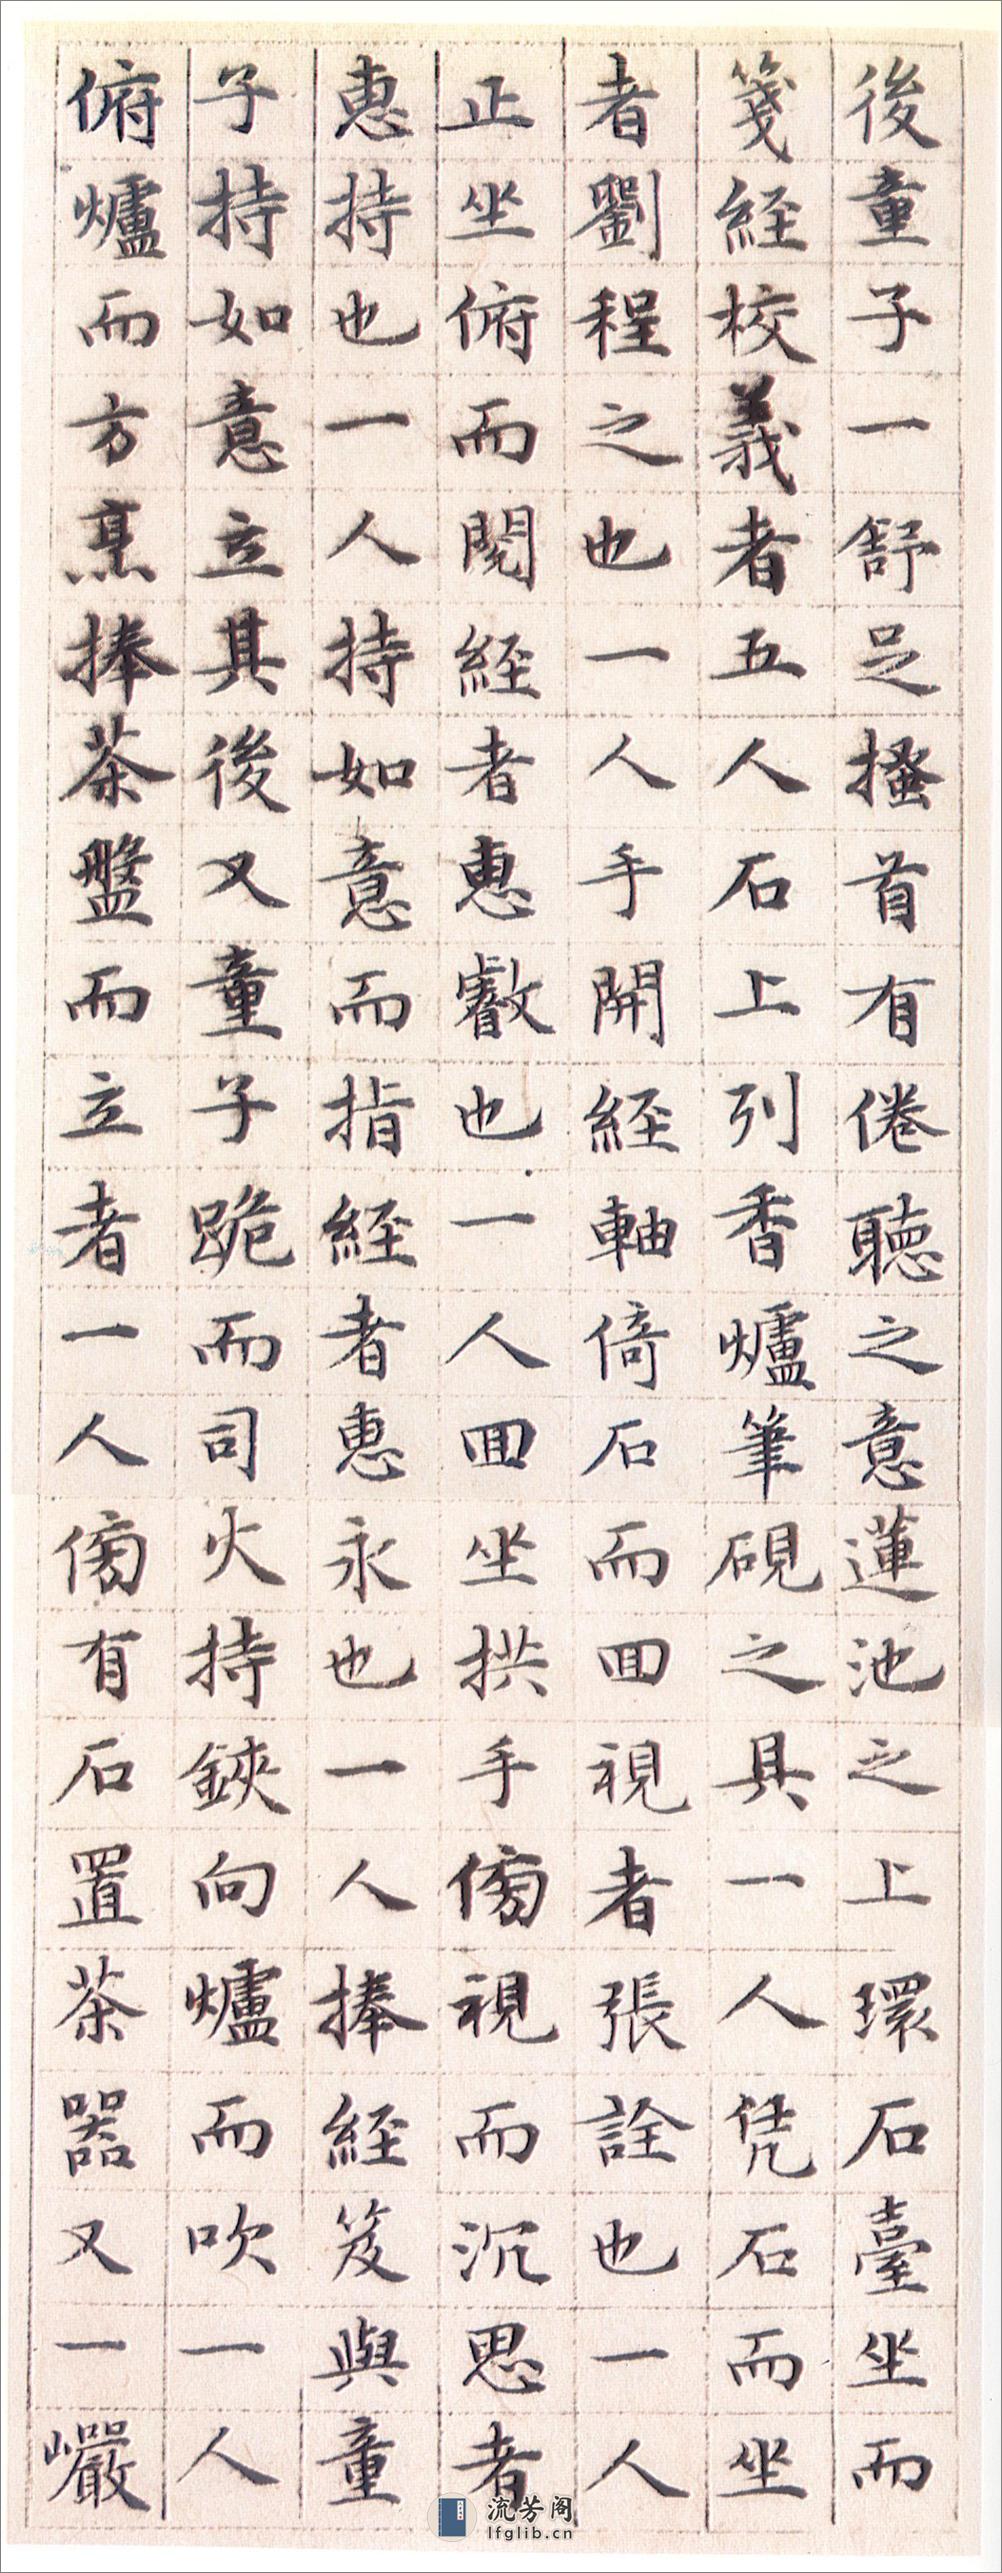 後童子一舒足搔首有倦聽之意蓮池之上環石臺坐而
箋經校義者五人石上列香爐筆硯之具一人凭石而坐
者劉程之也一人手開經軸倚石而回視者張詮也一人
正坐俯而閱經者惠叡也一人回坐拱手傍視而沉思者
惠持也一人持如意而指經者惠永也一人捧經笈與童
子持如意立其後又童子跪而司火持鋏向爐而吹一人
俯爐而方烹捧茶盤而立者一人傍有石置茶器又一巖
流芳阁
lfglib.cn